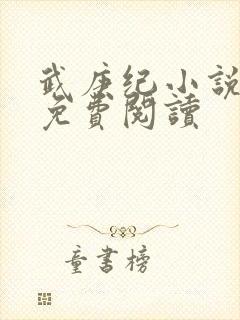 武庚纪小说
免費閱讀
童書榜